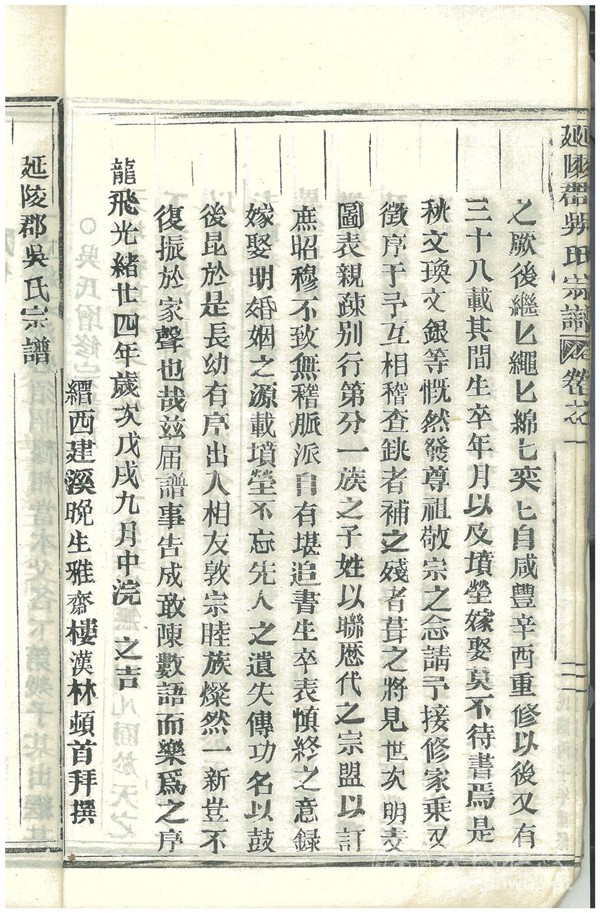 延陵郡吳氏宗譜 卷之一
之厥後繼匕繩匕綿匕奕匕自咸豐辛酉重修以後又有
三十八載其間生卒年月以及墳塋嫁娶莫不待書焉是
秋文瑍文銀等慨然發尊祖敬宗之念請予接修家乘又
徵序于予互相稽查缺者補之殘者葺之將見世次明支
圖表親疎別行第分一族之子姓以聯歷代之宗盟以訂
庶昭穆不致無稽脈派自有堪追書生卒表慎終之意錄
嫁娶明婚姻之源載墳塋不忘先人之遺失傳功名以鼓
後昆於是長幼有序出入相友敦宗睦族燦然一新豈不
復振於家聲也哉玆届譜事告成敢陳數語而樂爲之序
龍飛光緒廿四年歲次戊戌九月中浣 之吉
縉西建溪晚生雅齋樓漢林頓首拜撰
延陵郡吳氏宗譜